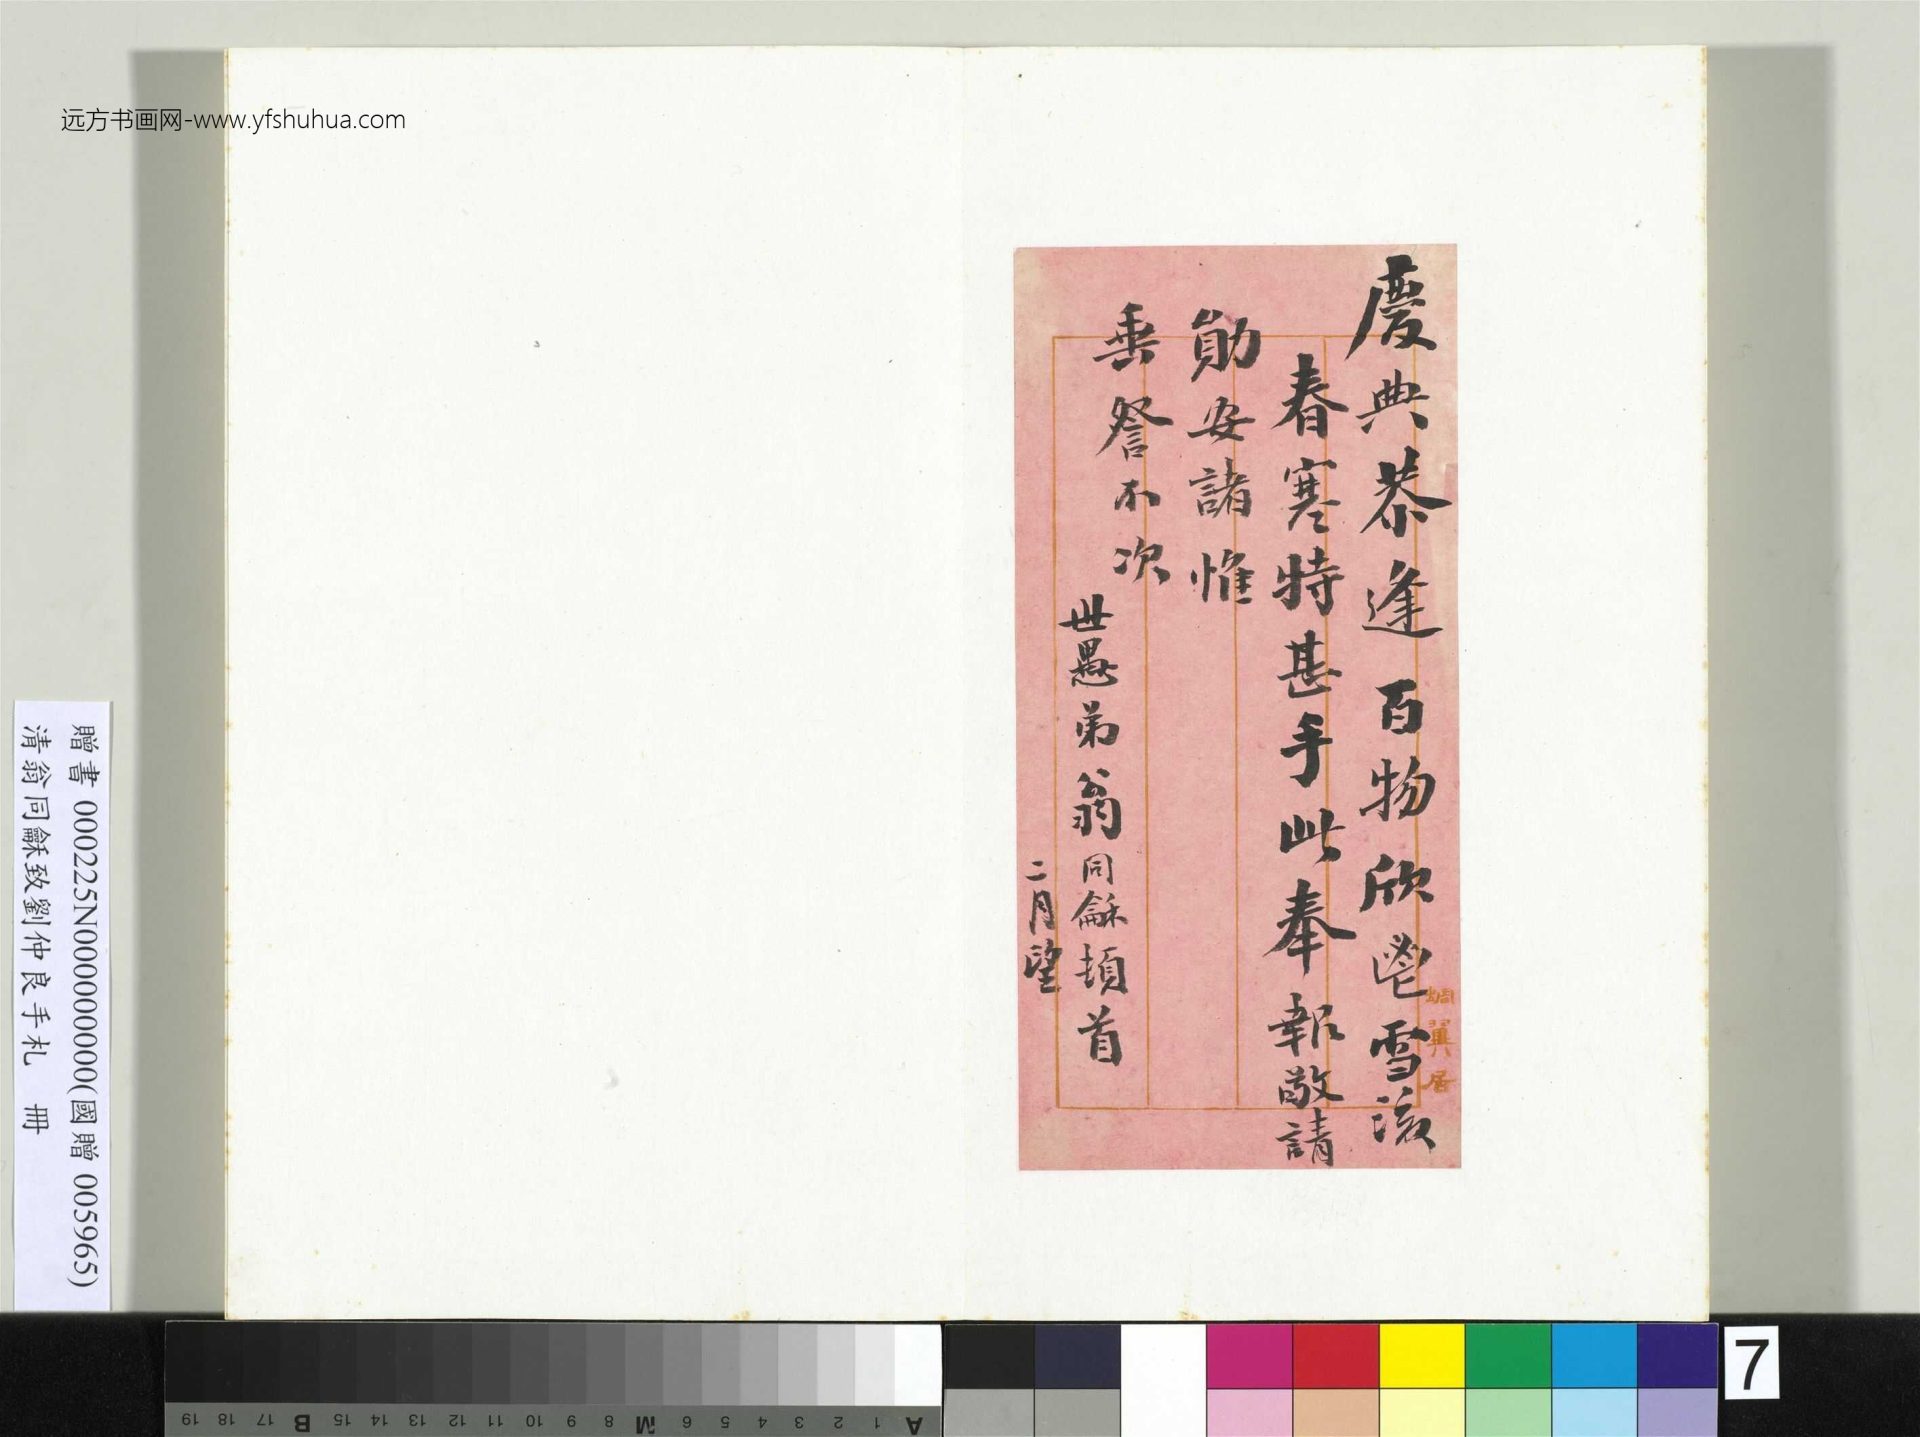 远方书画网-www.yfshuhua.com
慶典恭逢百物欣鬯雪後
春寒特甚手此奉報敬請
勛安諸惟
垂詧不次
世愚弟翁同龢頓首
二月望
蜩翼居
贈書 000225N000000000(國贈 005965)
清翁同龢致劉仲良手札 冊
A 1 2 3 4 5 6 M 8 9 10 11 12 13 14 15 B 17 18 19
7